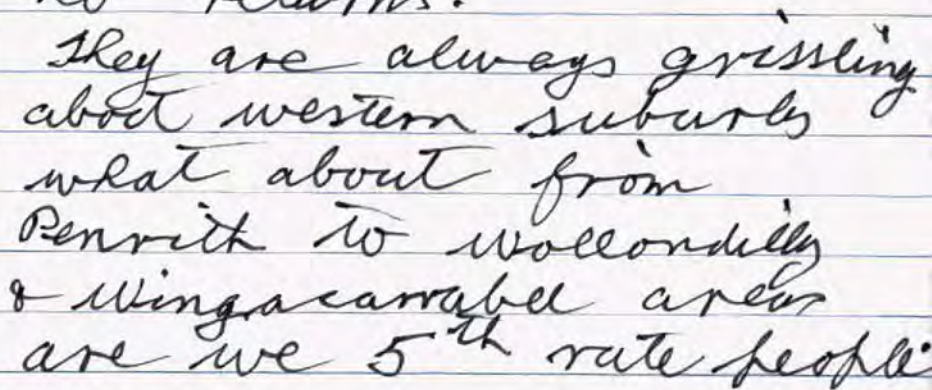 They are always grissling
aboot western suburbs
what about from
Penrith to Wollondilly
& Wingacarrabel areas
are we 5th rate people.